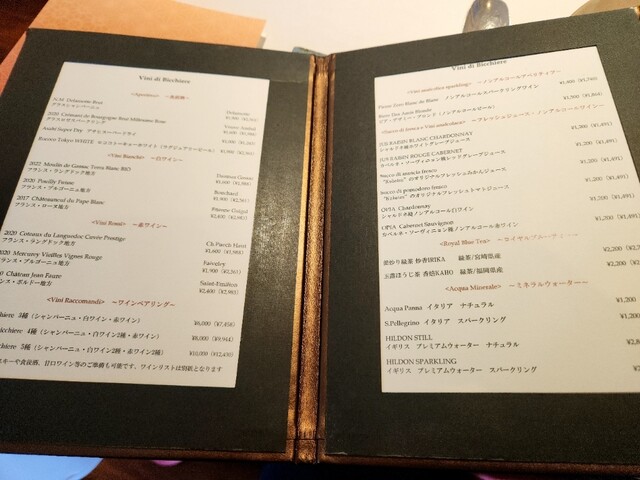 Vini di Bicchiere
<Aperitivo> ～食前酒～
N.M. Delamotte Brut
グラスシャンパーニュ
Delamotte
2020 Crémant de Bourgogne Brut Millesime Rose
グラスロゼスパークリング
Asahi Super Dry アサヒスーパードライ
Rococo Tokyo WHITE ロココトーキョーホワイト（ラグジュアリービール）
<Vini Bianchi> ～白ワイン～
2022 Moulin de Gassac Terra Blanc BIO
フランス・ラングドック地方
2020 Pouilly Fuisse
フランス・ブルゴーニュ地方
Bouchard
2017 Châteauneuf du Pape Blanc
フランス・ローヌ地方
Etienne Guigal
<Vini Rossi> ～赤ワイン～
2020 Coteaux du Languedoc Cuvée Prestige
フランス・ラングドック地方
Ch Puech Haut
2020 Mercurey Vieilles Vignes Rouge
フランス・ブルゴーニュ地方
Faiveley
¥1,900 (¥2,361)
Château Jean Faure
ランス・ボルドー地方
Saint-Emilion
¥2,400 (¥2,983)
<Vini Raccomandi> ～ワインペアリング～
chiere 3種（シャンパーニュ・白ワイン・赤ワイン）
¥6,000 (¥7,458)
icchiere 4種（シャンパーニュ・白ワイン2種・赤ワイン）
¥8,000 (¥9,944)
icchiere 5種（シャンパーニュ・白ワイン2種・赤ワイン2種）
¥10,000 (¥12,430)
スキーや食後酒、甘口ワイン等のご準備も可能です、ワインリストは別紙となります
Vini di Bicchiere
<vini analcolico sparkling> ～ノンアルコールアペリティフ～
Pierre Zero Blanc de Blanc ノンアルコールスパークリングワイン
¥1,400 (¥1,740)
<Succo di frutta e Vini analcolico> ～フレッシュジュース・ノンアルコールワイン～
JUS RAISIN BLANC CHARDONNAY
シャルドネ種ホワイトグレープジュース
¥1,200 (¥1,491)
JUS RAISIN ROUGE CABERNET
カベルネ・ソーヴィニョン種レッドグレープジュース
¥1,200 (¥1,491)
Succo di arancia fresco
のオリジナルフレッシュみかんジュース
¥1,200 (¥1,491)
Succo di pomodoro fresco
のオリジナルフレッシュトマトジュース
¥1,200 (¥1,491)
OPIA Chardonnay
シャルドネ種ノンアルコール白ワイン
¥1,200 (¥1,491)
OPIA Cabernet Sauvignon
カベルネ・ソーヴィニョン種ノンアルコール赤ワイン
¥1,200 (¥1,491)
<Royal Blue Tea> ～ロイヤルブルーティー～
釜炒り緑茶 妙香IRIKA 緑茶/宮崎県産
¥2,200
玉露ほうじ茶 香焙KAHO 緑茶/福岡県産
¥2,200
<Acqua Minerale> ～ミネラルウォーター～
Acqua Panna イタリア ナチュラル
S.Pellegrino イタリア スパークリング
HILDON STILL
イギリス プレミアムウォーター ナチュラル
HILDON SPARKLING
イギリス プレミアムウォーター スパークリング